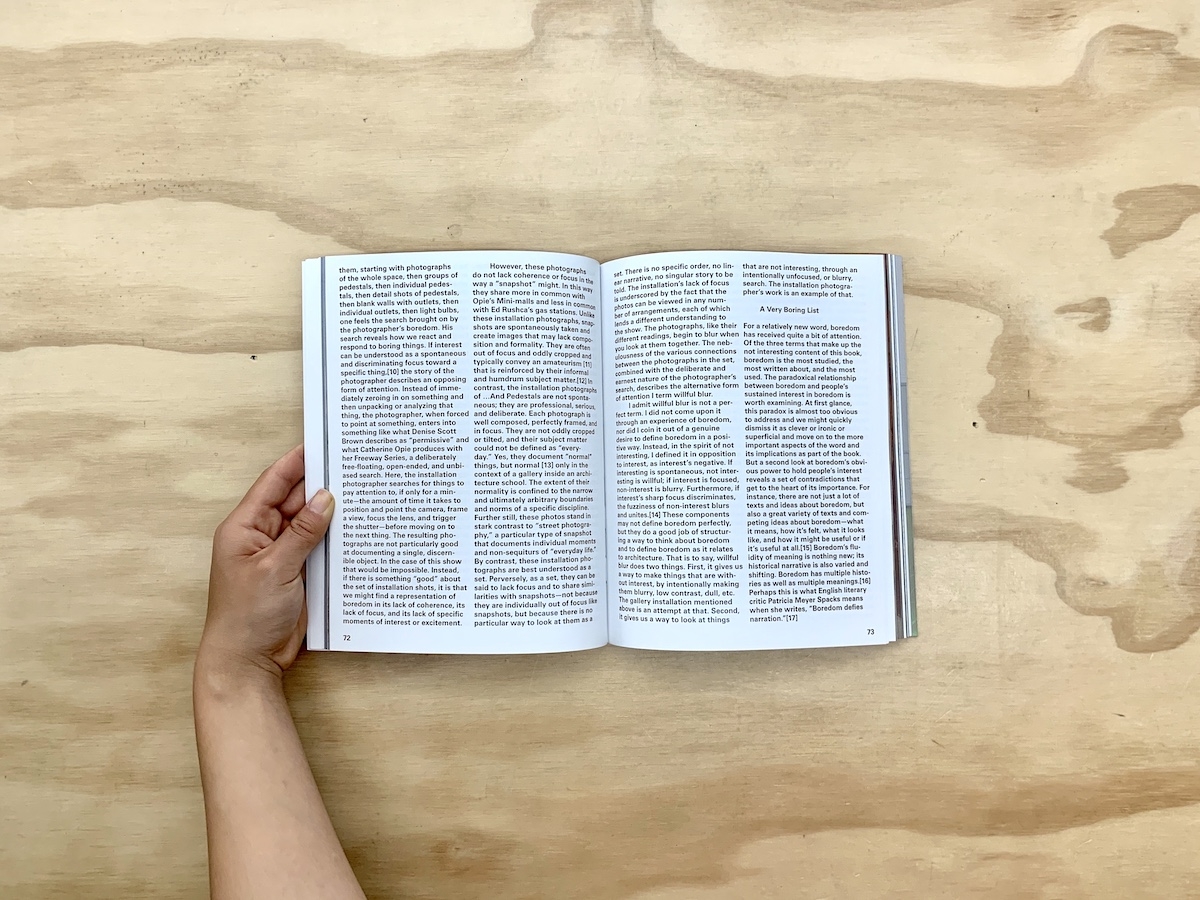 them, starting with photographs
of the whole space, then groups of
pedestals, then individual pedes-
tals, then detail shots of pedestals,
then blank walls with outlets, then
individual outlets, then light bulbs,
one feels the search brought on by
the photographer's boredom. His
search reveals how we react and
respond to boring things. If interest
can be understood as a spontaneous
and discriminating focus toward a
specific thing,[10] the story of the
photographer describes an opposing
form of attention. Instead of imme-
diately zeroing in on something and
then unpacking or analyzing that
thing, the photographer, when forced
to point at something, enters into
something like what Denise Scott
Brown describes as “permissive” and
what Catherine Opie produces with
her Freeway Series, a deliberately
free-floating, open-ended, and unbi-
ased search. Here, the installation
photographer searches for things to
pay attention to, if only for a min-
ute—the amount of time it takes to
position and point the camera, frame
a view, focus the lens, and trigger
the shutter—before moving on to
the next thing. The resulting pho-
tographs are not particularly good
at documenting a single, discern-
ible object. In the case of this show
that would be impossible. Instead,
if there is something “good” about
the set of installation shots, it is that
we might find a representation of
boredom in its lack of coherence, its
lack of focus, and its lack of specific
moments of interest or excitement.
72
However, these photographs
do not lack coherence or focus in the
way a “snapshot” might. In this way
they share more in common with
Opie's Mini-malls and less in common
with Ed Rushca's gas stations. Unlike
these installation photographs, snap-
shots are spontaneously taken and
create images that may lack compo-
sition and formality. They are often
out of focus and oddly cropped and
typically convey an amateurism [11]
that is reinforced by their informal
and humdrum subject matter.[12] In
contrast, the installation photographs
of ...And Pedestals are not sponta-
neous; they are professional, serious,
and deliberate. Each photograph is
well composed, perfectly framed, and
in focus. They are not oddly cropped
or tilted, and their subject matter
could not be defined as “every-
day.” Yes, they document “normal”
things, but normal [13] only in the
context of a gallery inside an archi-
tecture school. The extent of their
normality is confined to the narrow
and ultimately arbitrary boundaries
and norms of a specific discipline.
Further still, these photos stand in
stark contrast to “street photogra-
phy,” a particular type of snapshot
that documents individual moments
and non-sequiturs of “everyday life.”
By contrast, these installation pho-
tographs are best understood as a
set. Perversely, as a set, they can be
said to lack focus and to share simi-
larities with snapshots—not because
they are individually out of focus like
snapshots, but because there is no
particular way to look at them as a
set. There is no specific order, no lin-
ear narrative, no singular story to be
told. The installation's lack of focus
is underscored by the fact that the
photos can be viewed in any num-
ber of arrangements, each of which
lends a different understanding to
the show. The photographs, like their
different readings, begin to blur when
you look at them together. The neb-
ulousness of the various connections
between the photographs in the set,
combined with the deliberate and
earnest nature of the photographer's
search, describes the alternative form
of attention I term willful blur.
I admit willful blur is not a per-
fect term. I did not come upon it
through an experience of boredom,
nor did I coin it out of a genuine
desire to define boredom in a posi-
tive way. Instead, in the spirit of not
interesting, I defined it in opposition
to interest, as interest's negative. If
interesting is spontaneous, not inter-
esting is willful; if interest is focused,
non-interest is blurry. Furthermore, if
interest's sharp focus discriminates,
the fuzziness of non-interest blurs
and unites.[14] These components
may not define boredom perfectly,
but they do a good job of structur-
ing a way to think about boredom
and to define boredom as it relates
to architecture. That is to say, willful
blur does two things. First, it gives us
a way to make things that are with-
out interest, by intentionally making
them blurry, low contrast, dull, etc.
The gallery installation mentioned
above is an attempt at that. Second,
it gives us a way to look at things
that are not interesting, through an
intentionally unfocused, or blurry,
search. The installation photogra-
pher's work is an example of that.
A Very Boring List
For a relatively new word, boredom
has received quite a bit of attention.
Of the three terms that make up the
not interesting content of this book,
boredom is the most studied, the
most written about, and the most
used. The paradoxical relationship
between boredom and people's
sustained interest in boredom is
worth examining. At first glance,
this paradox is almost too obvious
to address and we might quickly
dismiss it as clever or ironic or
superficial and move on to the more
important aspects of the word and
its implications as part of the book.
But a second look at boredom's obvi-
ous power to hold people's interest
reveals a set of contradictions that
get to the heart of its importance. For
instance, there are not just a lot of
texts and ideas about boredom, but
also a great variety of texts and com-
peting ideas about boredom—what
it means, how it's felt, what it looks
like, and how it might be useful or if
it's useful at all.[15] Boredom's flu-
idity of meaning is nothing new; its
historical narrative is also varied and
shifting. Boredom has multiple histo-
ries as well as multiple meanings.[16]
Perhaps this is what English literary
critic Patricia Meyer Spacks means
when she writes, “Boredom defies
narration.”[17]
73